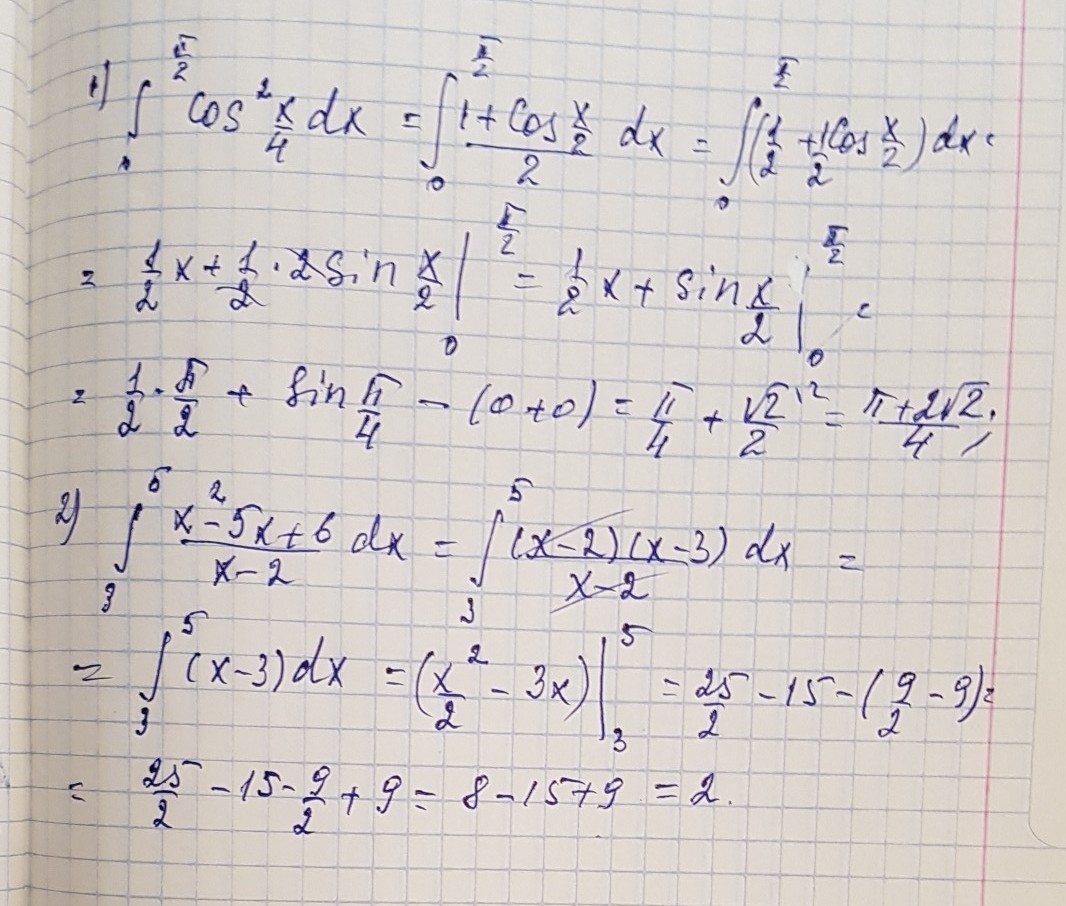 1) ∫₀^{π/2} cos² x/4 dx = ∫₀^{π/2} (1 + cos x/2)/2 dx = ∫₀^{π/2} (1/2 + 1/2 cos x/2) dx =
= 1/2 x + 1/2 · 2 sin x/2 |₀^{π/2} = 1/2 x + sin x/2 |₀^{π/2} =
= 1/2 · π/2 + sin π/4 − (0 + 0) = π/4 + √2/2 \² = (π + 2√2)/4 ;
2) ∫₃⁵ (x² − 5x + 6)/(x − 2) dx = ∫₃⁵ (x − 2)(x − 3)/(x − 2) dx =
= ∫₃⁵ (x − 3) dx = (x²/2 − 3x) |₃⁵ = 25/2 − 15 − (9/2 − 9) =
= 25/2 − 15 − 9/2 + 9 = 8 − 15 + 9 = 2.